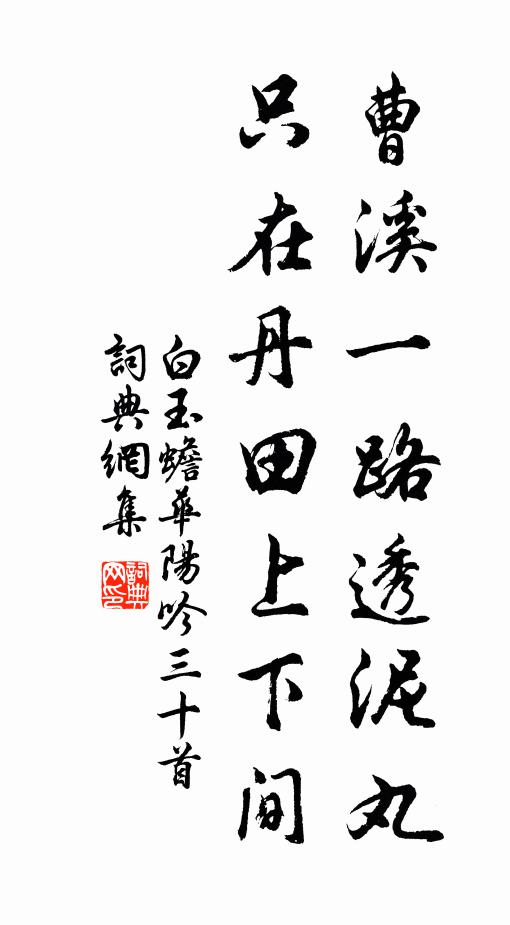 曹溪一路透泥丸
只在丹田上下間
白玉蟾華陽吟三十首
詞典網集
詞典网印